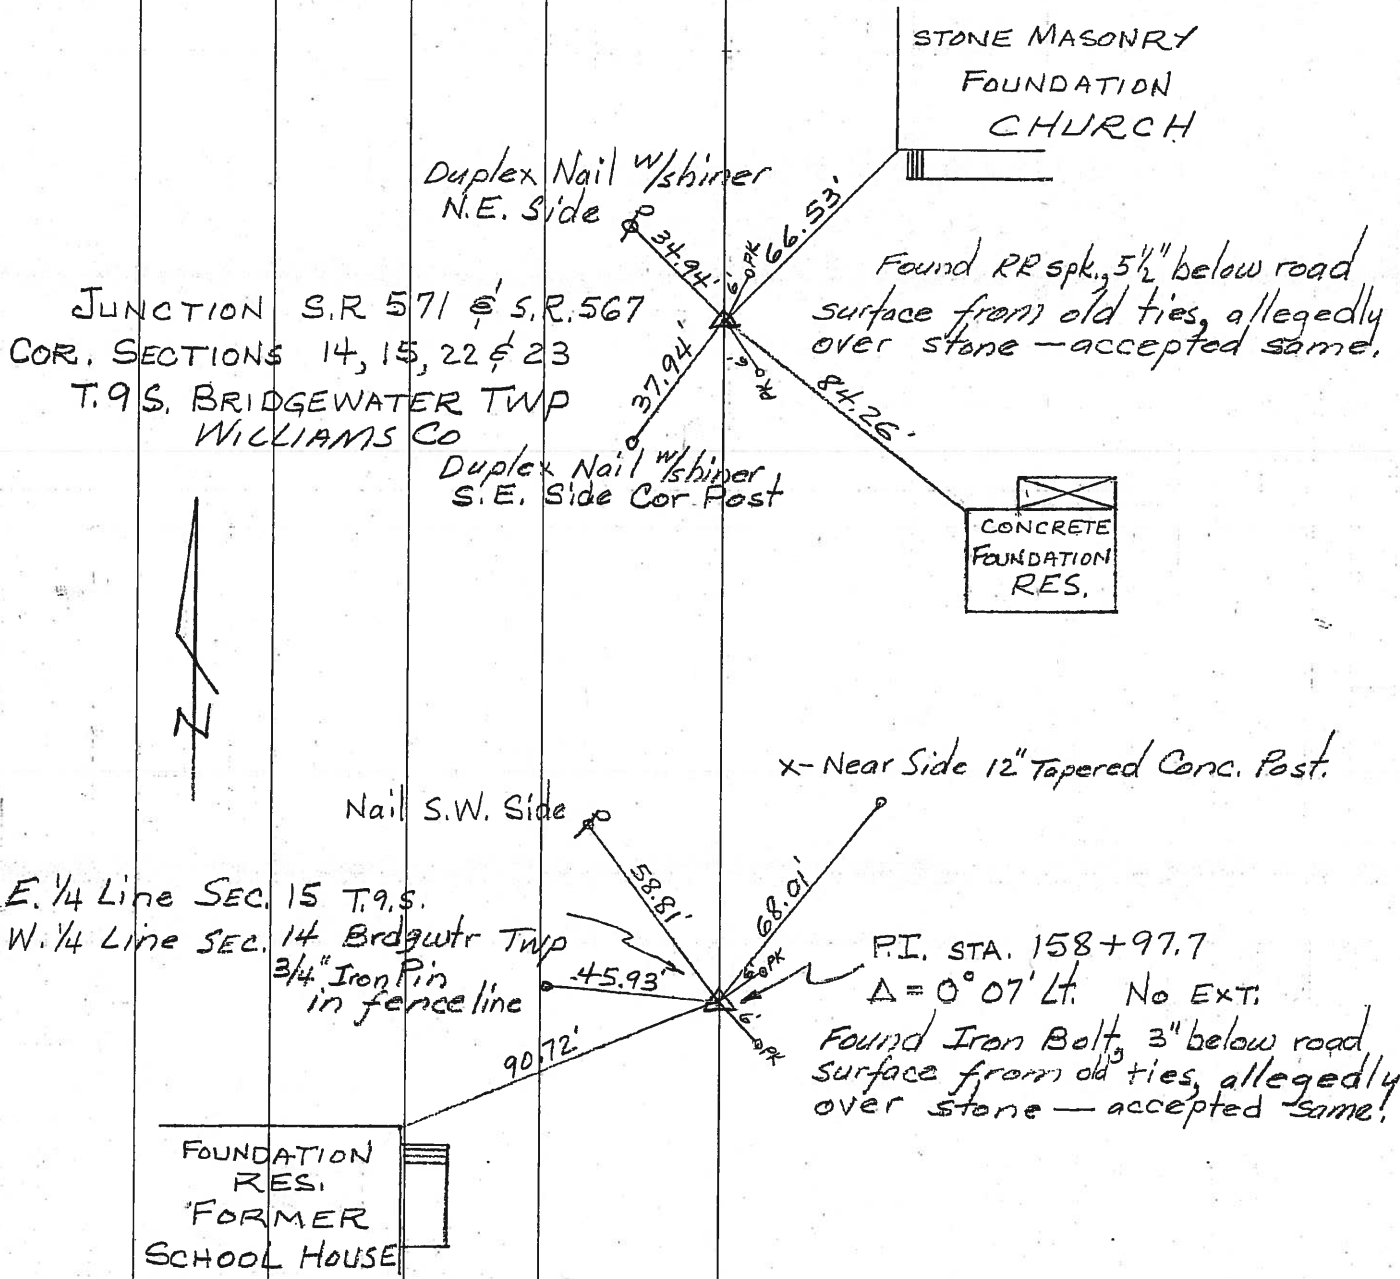 STONE MASONRY
FOUNDATION
CHURCH
Duplex Nail w/shiner
N.E. Side
34.94'
6' PK
66.53'
Found RR spk., 5½" below road
surface from old ties, allegedly
over stone — accepted same.
JUNCTION S.R 571 & S.R. 567
COR. SECTIONS 14, 15, 22 & 23
T.9S. BRIDGEWATER TWP
WILLIAMS CO
37.94'
6' PK
84.26'
Duplex Nail w/shiner
S.E. Side Cor Post
CONCRETE
FOUNDATION
RES.
N
x- Near Side 12" Tapered Conc. Post.
Nail S.W. Side
58.81'
68.01'
E. 1/4 Line SEC. 15 T.9.S.
W. 1/4 Line SEC. 14 Brdgwtr Twp
3/4" Iron Pin
in fence line
45.93'
6' PK
P.I. STA. 158+97.7
Δ = 0° 07' Lt. No EXT.
6' PK
Found Iron Bolt, 3" below road
surface from old ties, allegedly
over stone — accepted same!
90.72'
FOUNDATION
RES.
FORMER
SCHOOL HOUSE